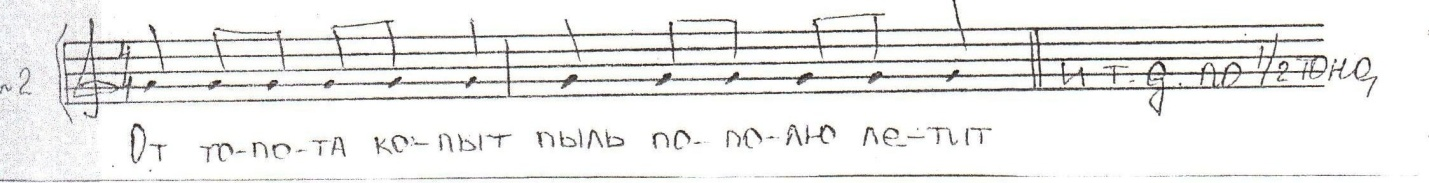 №2 4/4 И т.д. по 1/2 тона
От то-по-та ко-пыт пыль по-по-лю ле-тит